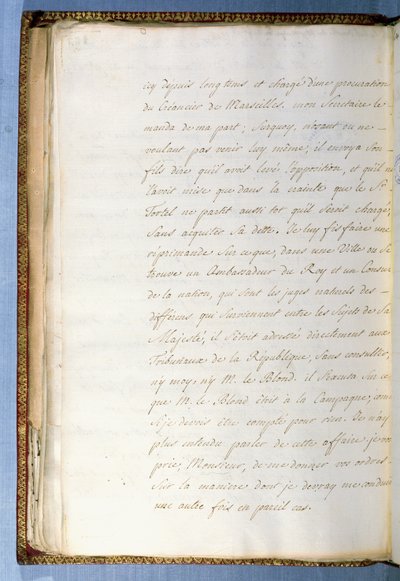 icy depuis longtems et chargé d'une procuration
du Créancier de Marseilles. mon Secretaire le
manda de ma part; Surquoy, n'osant ou ne-
voulant pas venir luy même; il envoya Son-
fils dire qu'il avoit levé l'opposition, et qu'il ne
l'avoit mise que dans la crainte que le Sr.
Tortel ne partit aussi tot qu'il Seroit chargé,
Sans acquiter Sa dette. Je luy fis faire une
réprimande Sur ce que, dans une Ville ou Se
trouve un Ambassadeur du Roy et un Consul
de la nation, qui Sont les juges naturels des-
differens qui Surviennent entre les Sujets de Sa
Majesté, il S'étoit adressé directement aux
Tribunaux de la République, Sans consulter,
n'y moy, n'y M. le Blond. il S'excusa Sur ce
que M. le Blond étoit à la Campagne, come
Si je devois être compté pour rien. Je n'ay
plus entendu parler de cette affaire. je vous
prie, Monsieur, de me donner vos ordres-
Sur la maniere dont je devray me conduire
une autre fois en pareil cas.